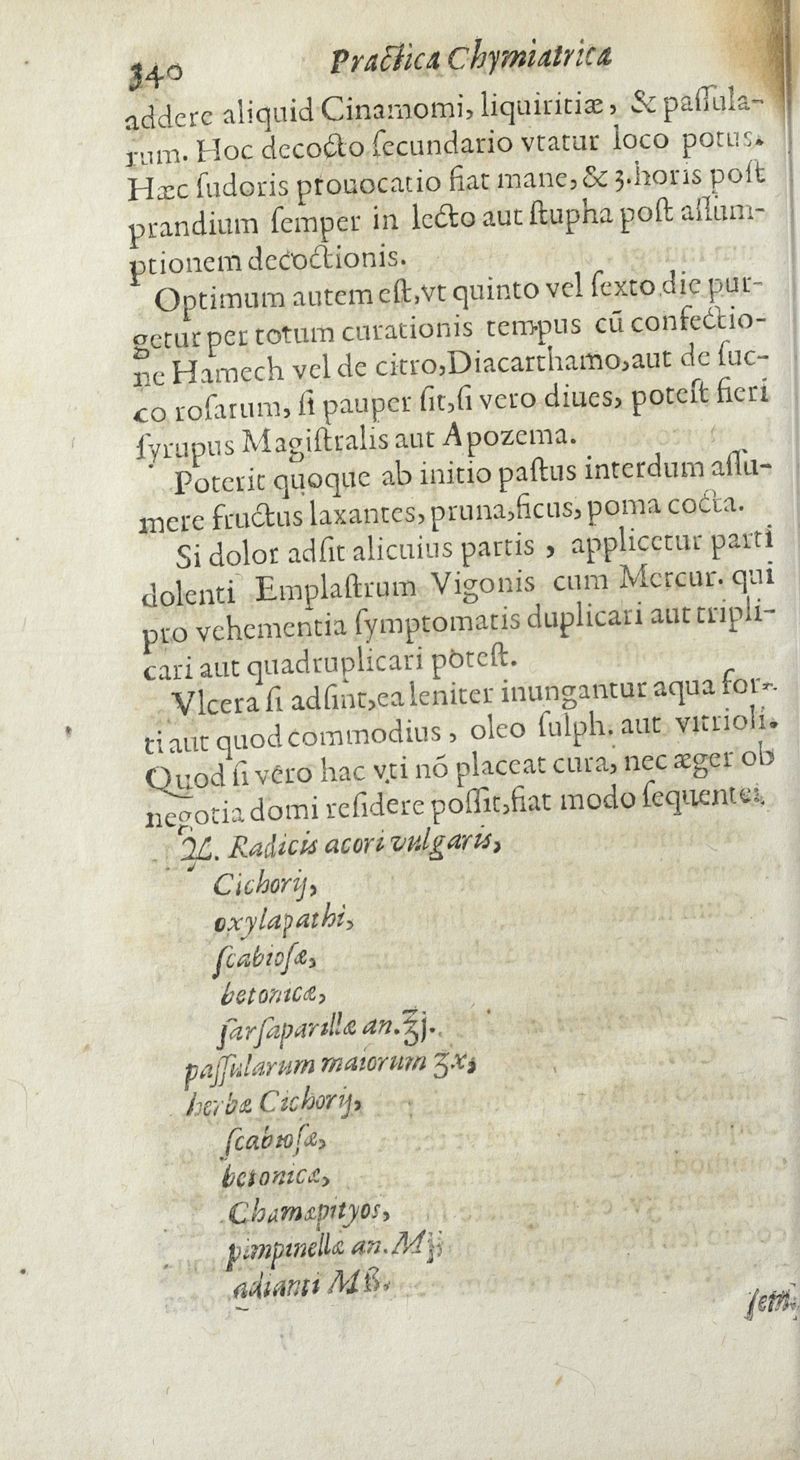 340 Practica Chymiatrica
addere aliquid Cinamomi, liquiritiæ, & paſſula-
rum. Hoc decocto ſecundario vtatur loco potus.
Hæc ſudoris prouocatio fiat mane, & 3. horis poſt
prandium ſemper in lecto aut ſtupha poſt aſſum-
ptionem decoctionis.
Optimum autem eſt, vt quinto vel ſexto die pur-
getur per totum curationis tempus cū confectio-
ne Hamech vel de citro, Diacarthamo, aut de ſuc-
co roſarum, ſi pauper ſit, ſi vero diues, poteſt fieri
ſyrupus Magiſtralis aut Apozema.
Poterit quoque ab initio paſtus interdum aſſu-
mere fructus laxantes, pruna, ficus, poma cocta.
Si dolor adſit alicuius partis, applicetur parti
dolenti Emplaſtrum Vigonis cum Mercur. qui
pro vehementia ſymptomatis duplicari aut tripli-
cari aut quadruplicari poteſt.
Vlcera ſi adſint, ea leniter inungantur aqua for-
ti aut quod commodius, oleo ſulph. aut vitrioli.
Quod ſi vero hac vti nō placeat cura, nec æger ob
negotia domi reſidere poſſit, fiat modo ſequente.
♃. Radicis acori vulgaris,
Cichorij,
oxylapathi,
ſcabioſæ,
betonicæ,
ſarſaparillæ an. ℥j.
paſſularum maiorum ʒx,
herbæ Cichorij,
ſcabioſæ,
betonicæ,
Chamæpityos,
pimpinellæ an. Mj,
adianti Mß.
ſem.